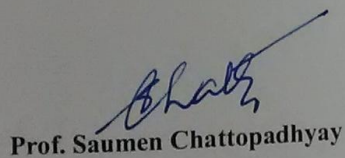 Prof. Saumen Chattopadhyay